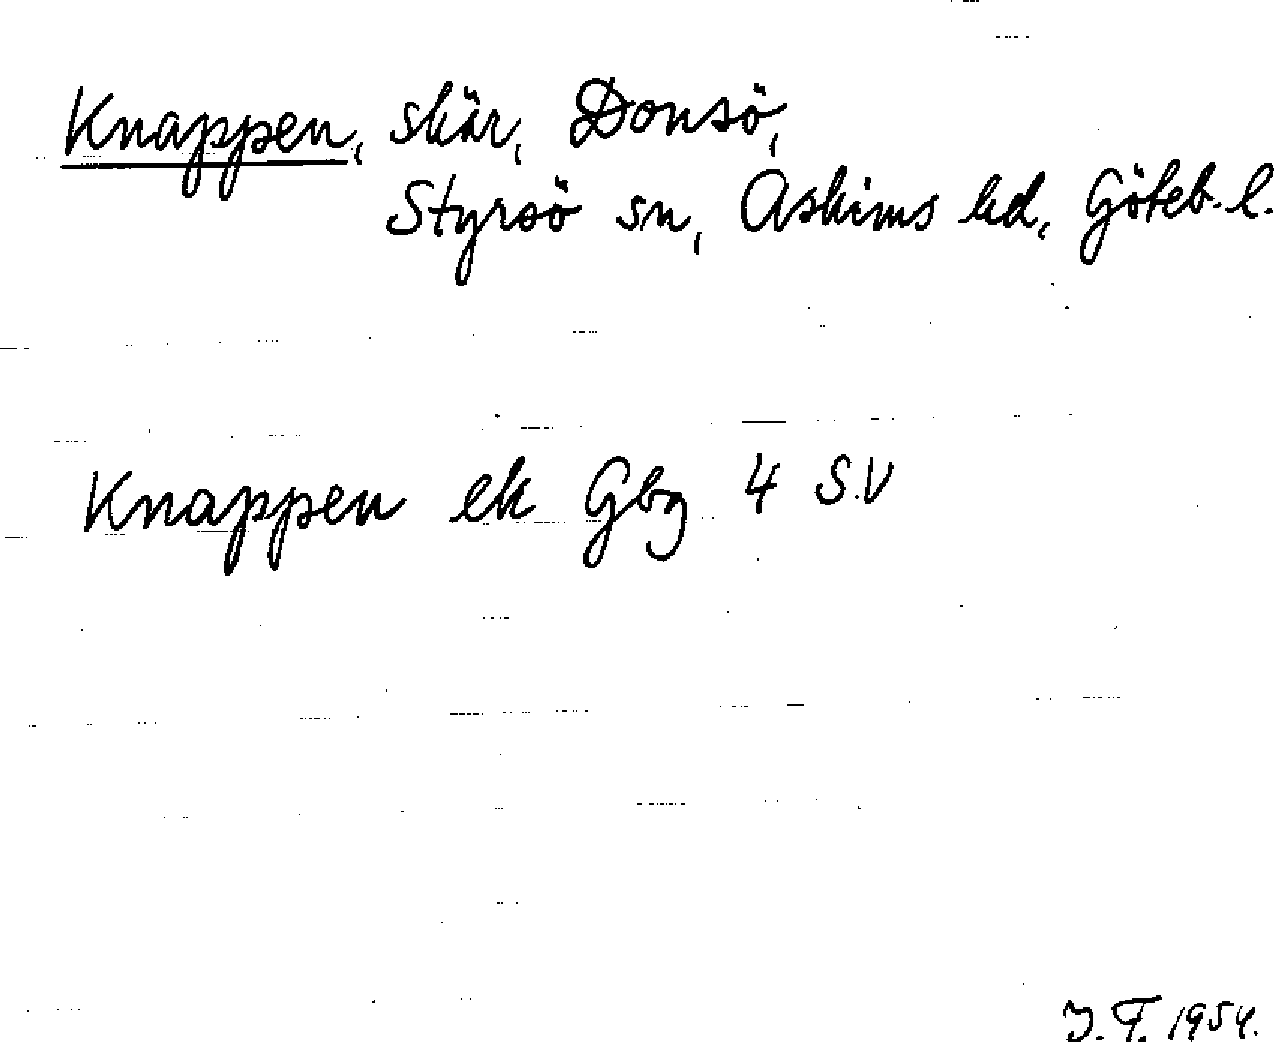 Knappen, skär, Donsö,
Styrsö sn, Askims hd, Göteb. l.
Knappen ek Gbg 4 S.V
J. F. 1954.